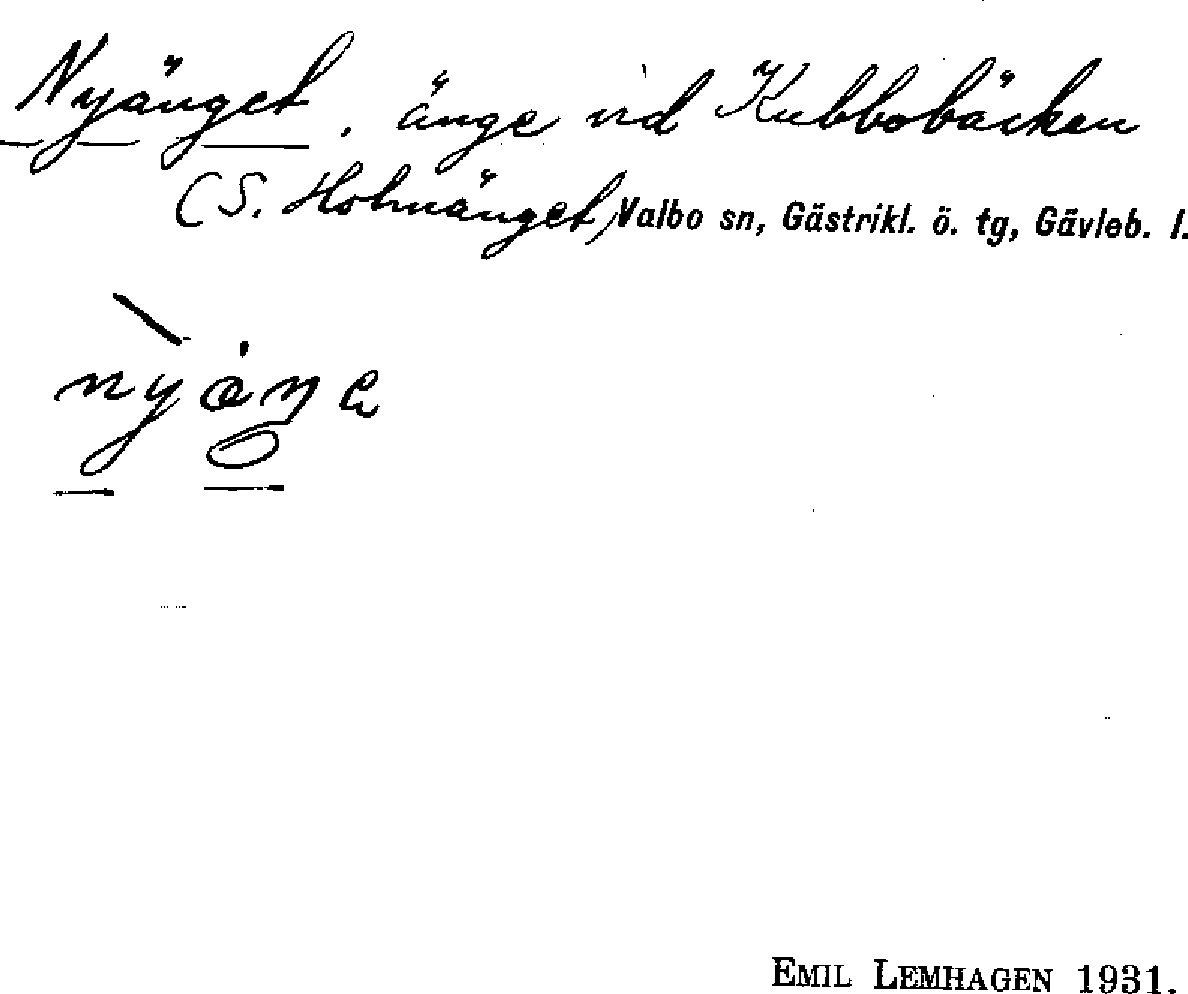 Nyänget, änge vid Kubbobäcken
(S. Holmänget) Valbo sn, Gästrikl. ö. tg, Gävleb. l.
EMIL LEMHAGEN 1931.